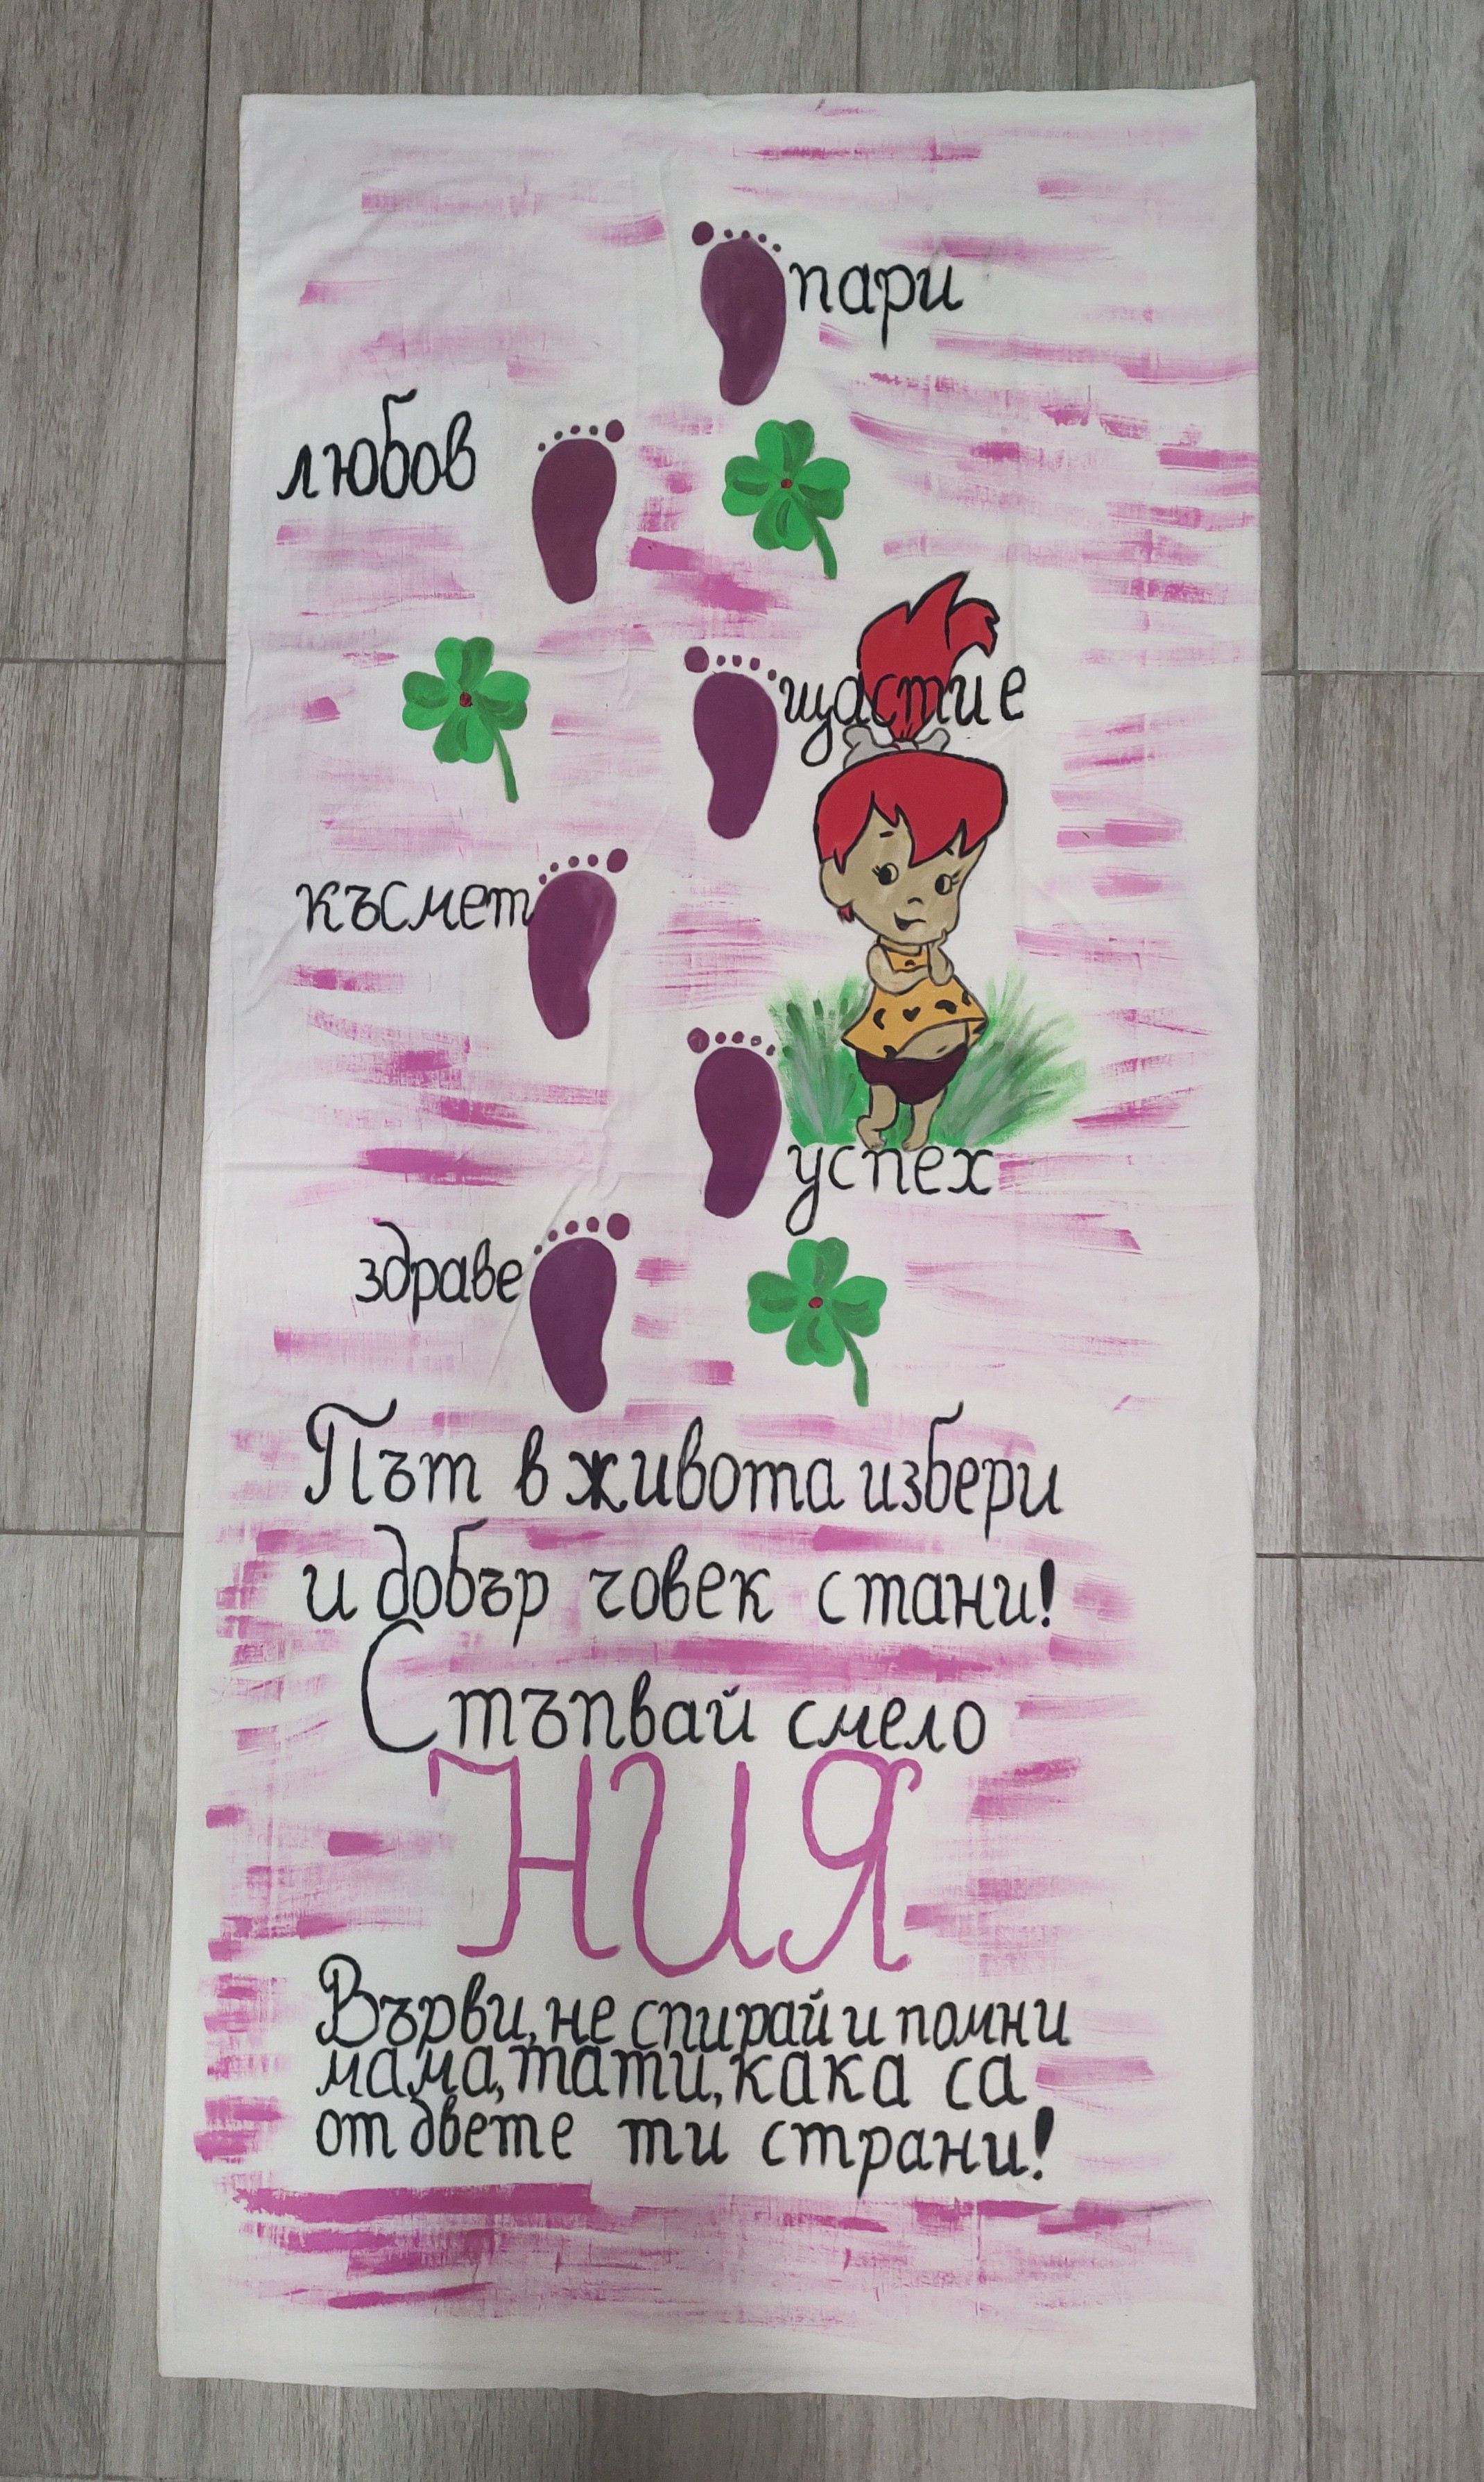 пари
любов
щастие
късмет
успех
здраве
Път в живота избери
и добър човек стани!
Стъпвай смело
НИЯ
Върви, не спирай и помни
мама, тати, кака са
от двете ти страни!